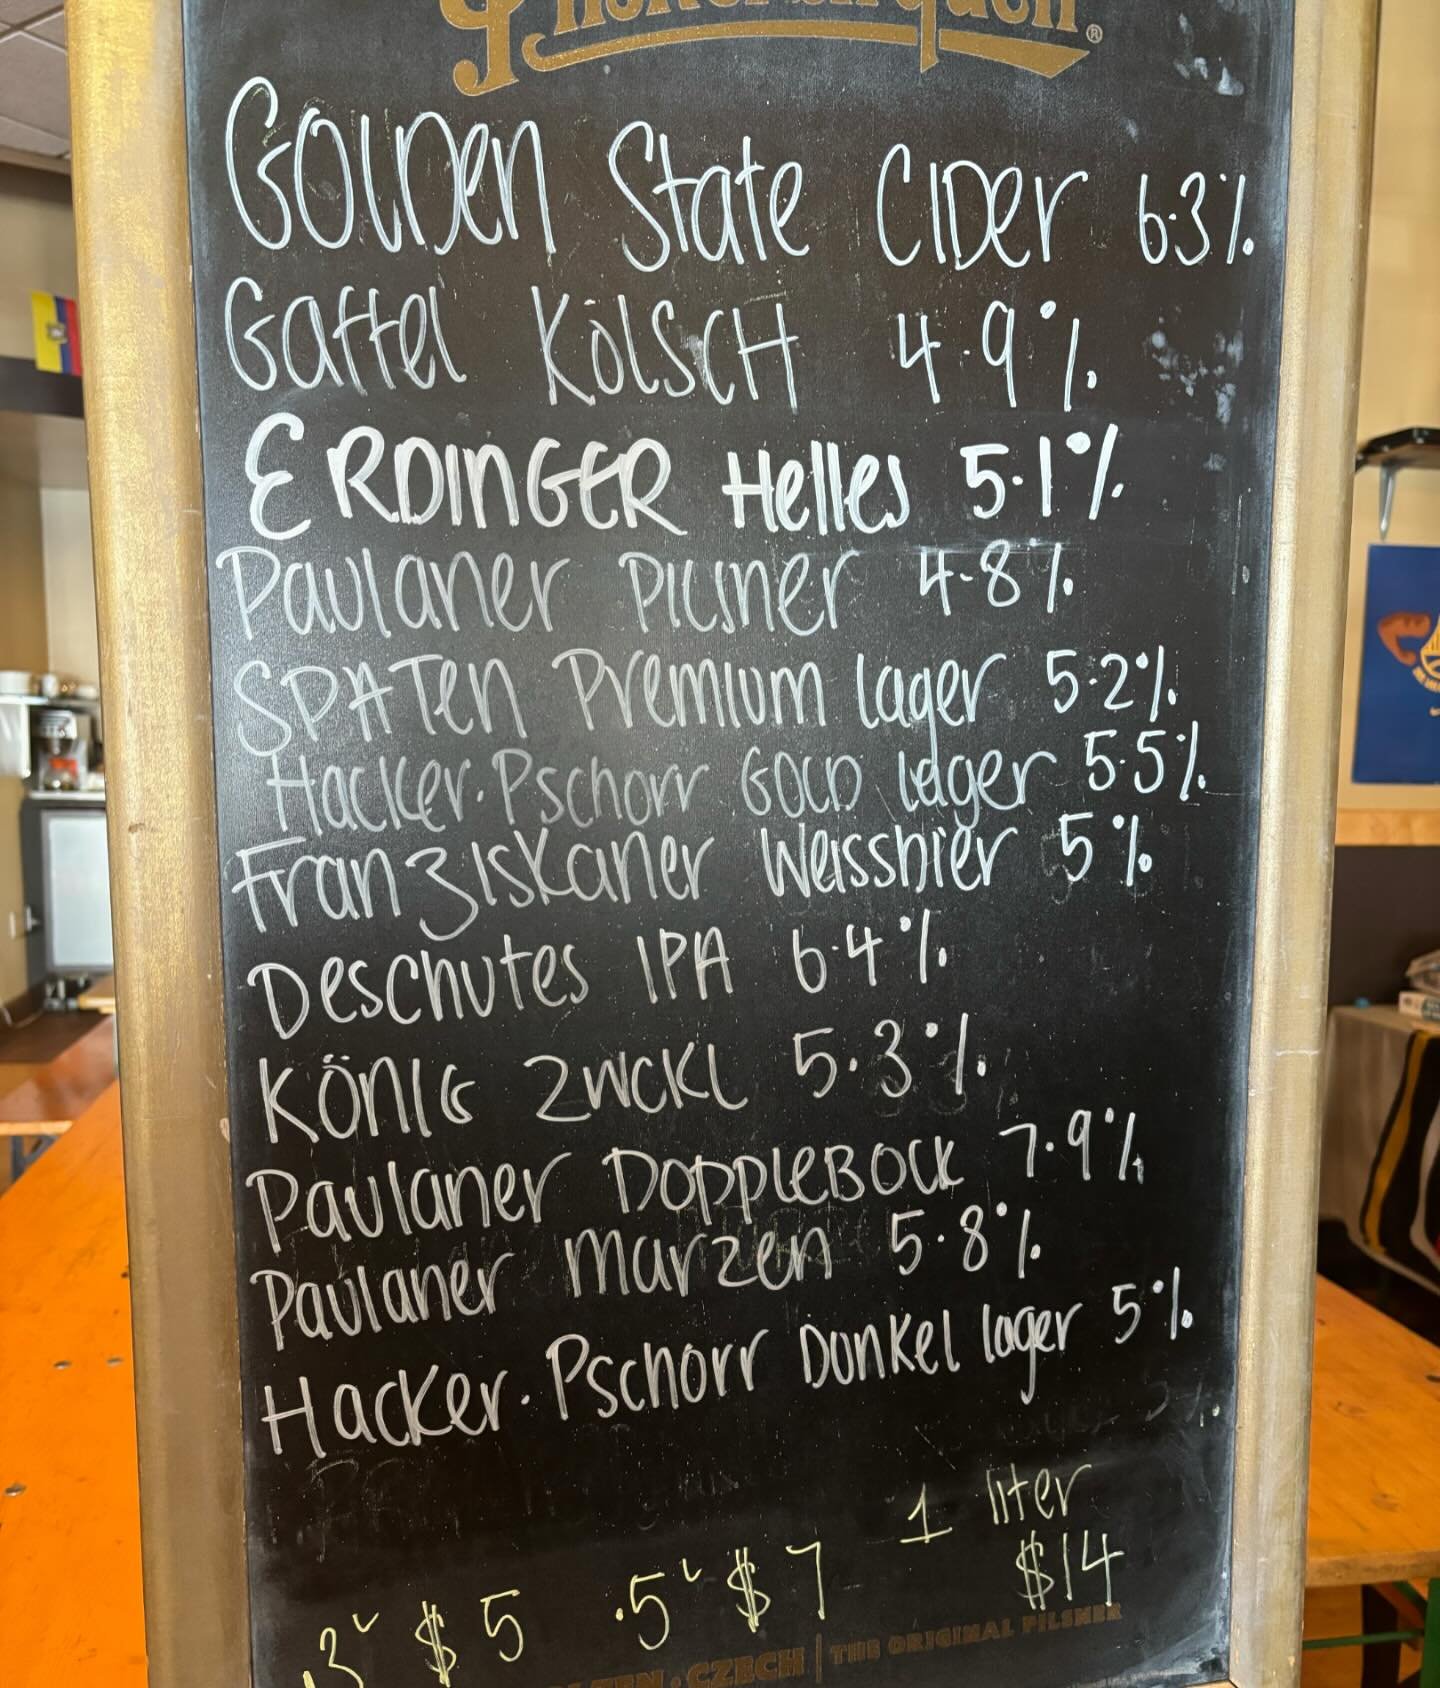 Golden State Cider 6.3%
Gaffel Kölsch 4.9%
ERDINGER Helles 5.1%
Paulaner Pilsner 4.8%
SPATEN Premium lager 5.2%
Hacker-Pschorr GOLD lager 5.5%
Franziskaner Weissbier 5%
Deschutes IPA 6.4%
KÖNIG ZWCKL 5.3%
Paulaner DOPPLEBOCK 7.9%
Paulaner Marzen 5.8%
Hacker-Pschorr Dunkel lager 5%
1 liter
.3 $5 .5 $7 $14
CZECH | THE ORIGINAL PILSNER